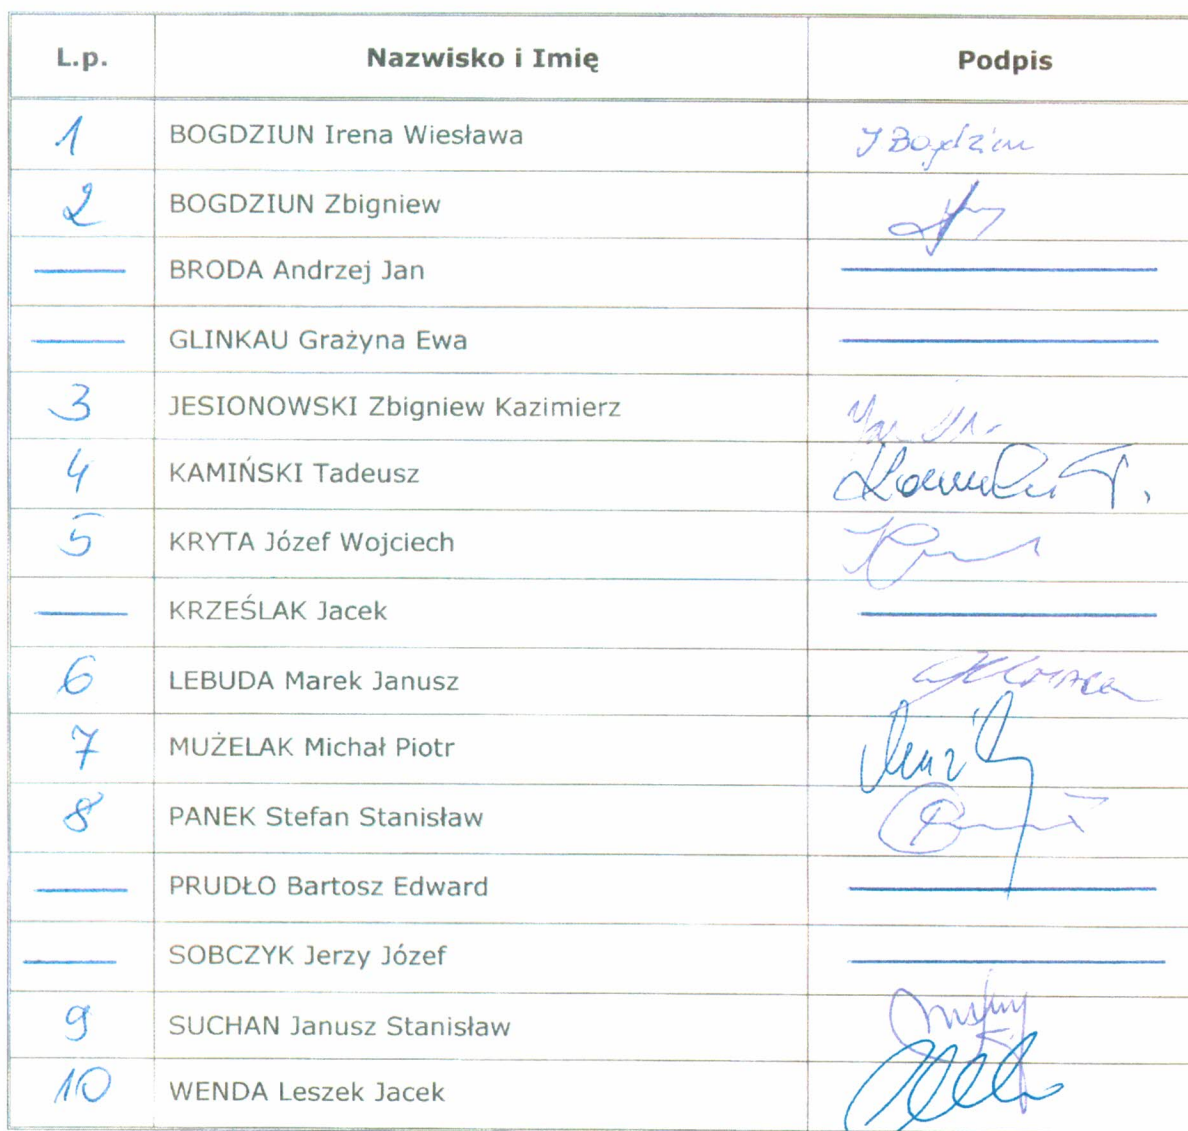 L.p. Nazwisko i Imię Podpis
1 BOGDZIUN Irena Wiesława I Bogdziun
2 BOGDZIUN Zbigniew
BRODA Andrzej Jan
GLINKAU Grażyna Ewa
3 JESIONOWSKI Zbigniew Kazimierz
4 KAMIŃSKI Tadeusz
5 KRYTA Józef Wojciech
KRZEŚLAK Jacek
6 LEBUDA Marek Janusz
7 MUŻELAK Michał Piotr
8 PANEK Stefan Stanisław
PRUDŁO Bartosz Edward
SOBCZYK Jerzy Józef
9 SUCHAN Janusz Stanisław
10 WENDA Leszek Jacek